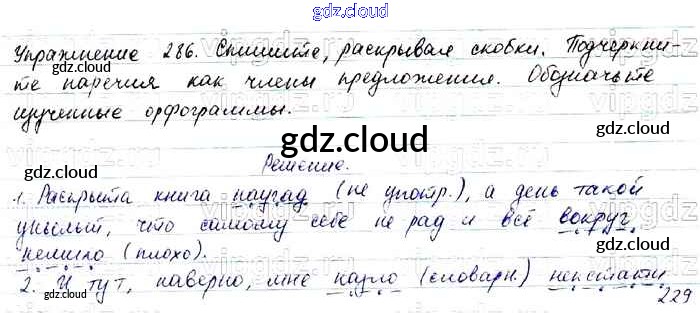 gdz.cloud
Упражнение 286. Спишите, раскрывая скобки. Подчеркни-
те наречия как члены предложения. Обозначьте
изученные орфограммы.
gdz.cloud
gdz.cloud
gdz.cloud
gdz.cloud
Решение.
1. Раскрыта книга наугад (не употр.), а день такой
унылый, что самому себе не рад и всё вокруг
немило (плохо).
gdz.cloud
gdz.cloud
gdz.cloud
2. И тут, наверно, мне назло (словарн.) некстати
229